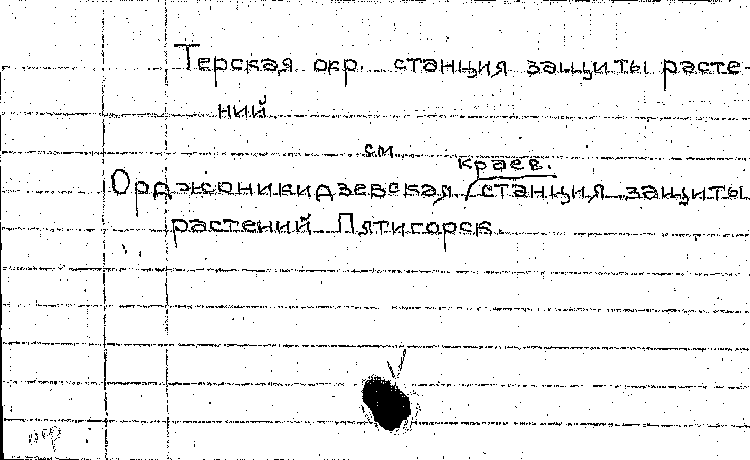 Терская окр. станция защиты расте-
ний
см
краев.
Орджоникидзевская станция защиты
растений Пятигорск.